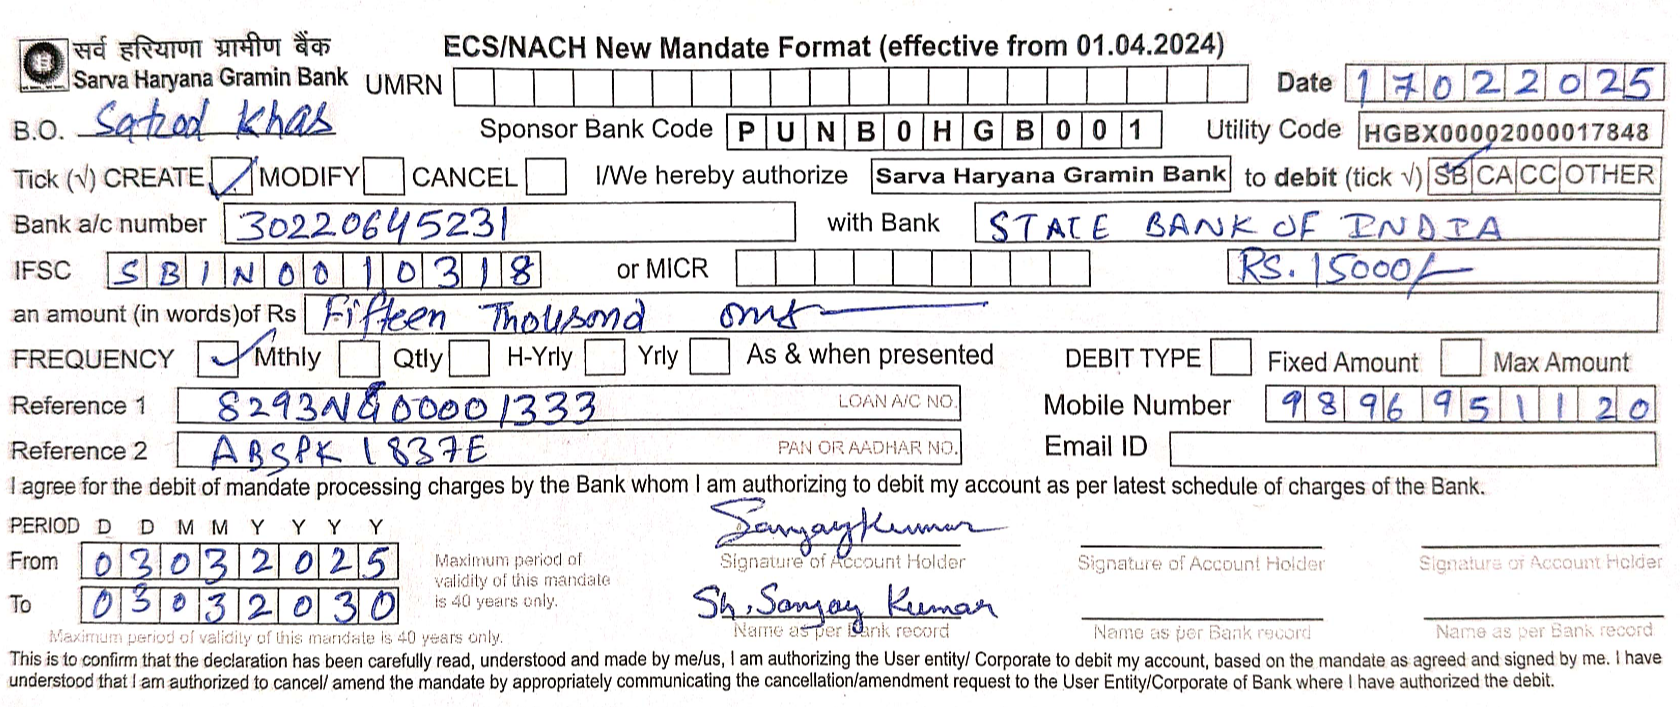 सर्व हरियाणा ग्रामीण बैंक
Sarva Haryana Gramin Bank
ECS/NACH New Mandate Format (effective from 01.04.2024)
UMRN Date 17022025
B.O. Satrod Khas Sponsor Bank Code PUNB0HGB001 Utility Code HGBX00002000017848
Tick (√) CREATE MODIFY CANCEL I/We hereby authorize Sarva Haryana Gramin Bank to debit (tick √) SB CA CC OTHER
Bank a/c number 30220645231 with Bank STATE BANK OF INDIA
IFSC SBIN0010318 or MICR RS. 15000/-
an amount (in words)of Rs Fifteen Thousand only
FREQUENCY Mthly Qtly H-Yrly Yrly As & when presented DEBIT TYPE Fixed Amount Max Amount
Reference 1 8293NG00001333 LOAN A/C NO. Mobile Number 9896951120
Reference 2 ABSPK1837E PAN OR AADHAR NO. Email ID
I agree for the debit of mandate processing charges by the Bank whom I am authorizing to debit my account as per latest schedule of charges of the Bank.
PERIOD D D M M Y Y Y Y
From 03032025
To 03032030
Maximum period of validity of this mandate is 40 years only.
Maximum period of
validity of this mandate
is 40 years only.
Sanjay Kumar
Signature of Account Holder Signature of Account Holder Signature of Account Holder
Sh. Sanjay Kumar
Name as per Bank record Name as per Bank record Name as per Bank record
This is to confirm that the declaration has been carefully read, understood and made by me/us, I am authorizing the User entity/ Corporate to debit my account, based on the mandate as agreed and signed by me. I have
understood that I am authorized to cancel/ amend the mandate by appropriately communicating the cancellation/amendment request to the User Entity/Corporate of Bank where I have authorized the debit.